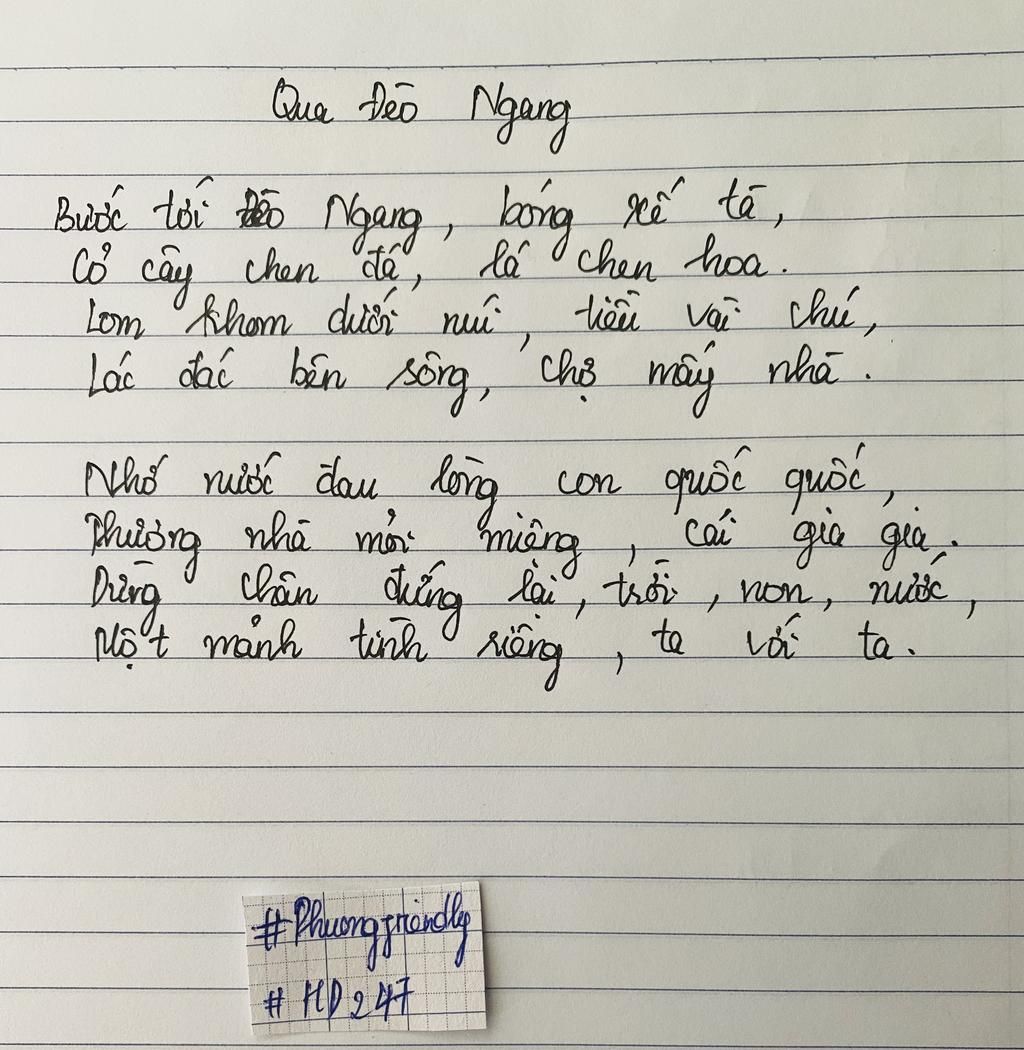 Qua Đèo Ngang
Bước tới Đèo Ngang, bóng xế tà,
Cỏ cây chen đá, lá chen hoa.
Lom khom dưới núi, tiều vài chú,
Lác đác bên sông, chợ mấy nhà.
Nhớ nước đau lòng con quốc quốc,
Thương nhà mỏi miệng, cái gia gia.
Dừng chân đứng lại, trời, non, nước,
Một mảnh tình riêng, ta với ta.
#Phuongfriendly
#HD247